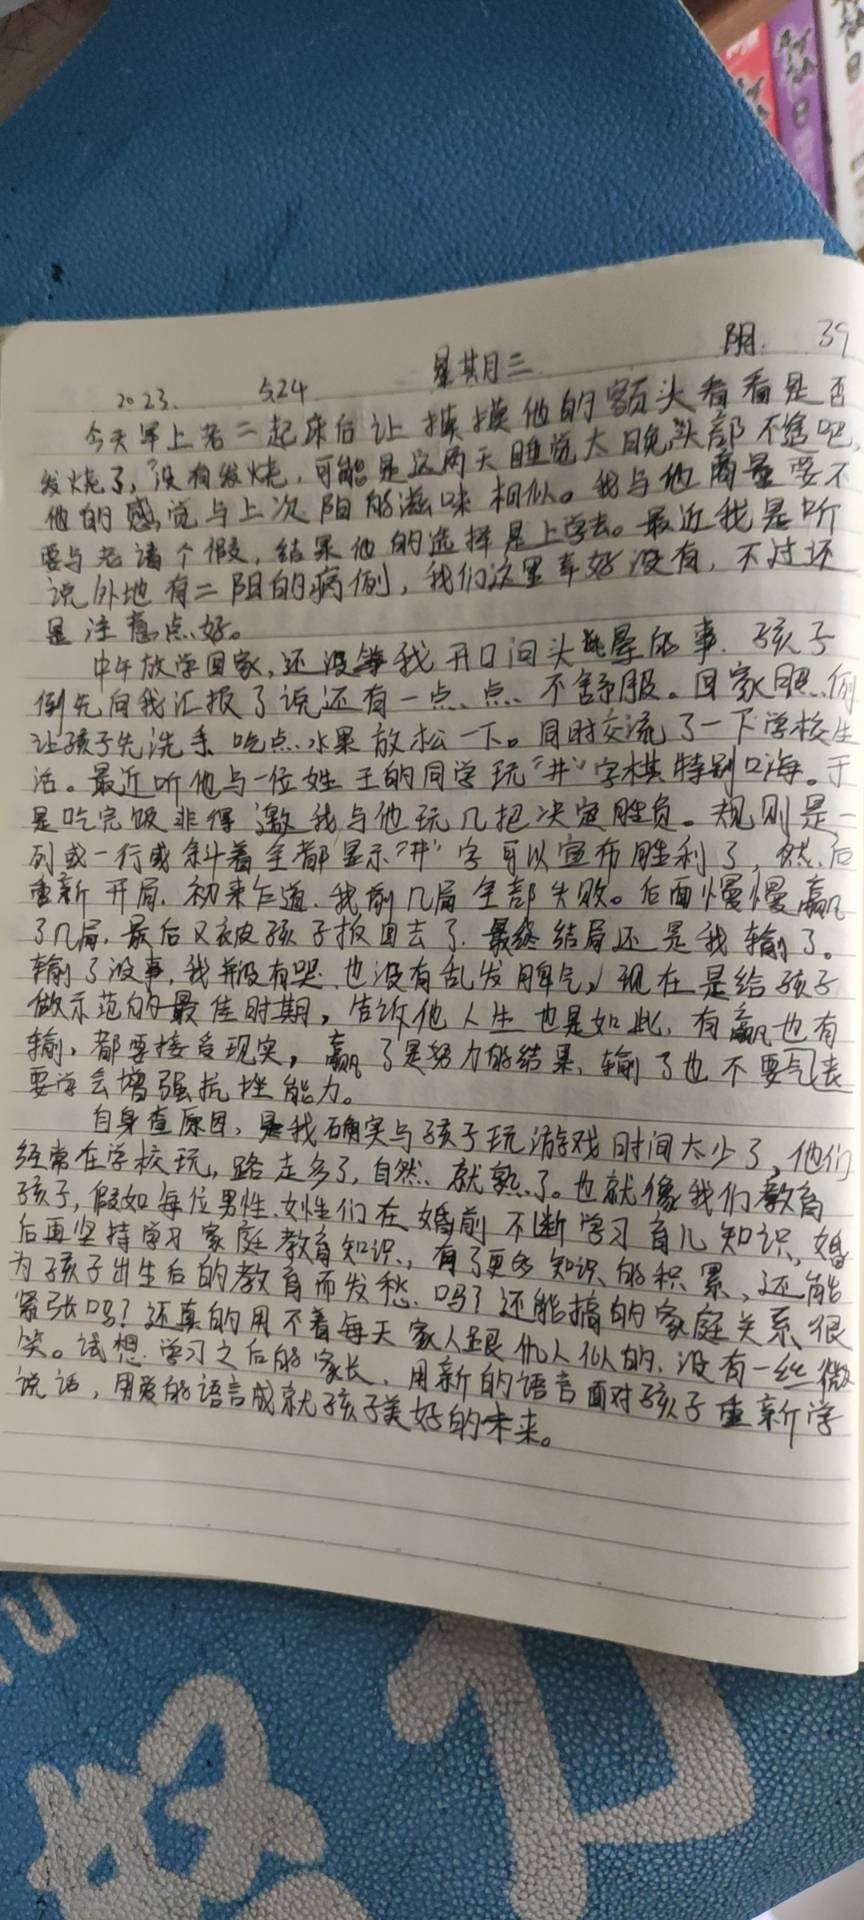 2023. 5.24 星期三 阴. 39
今天早上老二起床后让摸摸他的额头看看是否
发烧了,没有发烧,可能是这两天睡觉太晚,头部不舍吧,
他的感觉与上次阳的滋味相似。我与他商量要不
要与老请个假,结果他的选择是上学去。最近我是听
说外地有二阳的病例,我们这里幸好没有,不过还
是注意点好。
中午放学回家,还没等我开口问头晕的事.孩子
倒先向我汇报了说还有一点点不舒服。回家照例
让孩子先洗手吃点水果放松一下。同时交流了一下学校生
活。最近听他与一位姓王的同学玩"井"字棋特别口海。于
是吃完饭非得邀我与他玩几把决定胜负。规则是一
列或一行或斜着全都显示"井"字可以宣布胜利了,然后
重新开局.初来乍道.我前几局全部失败。后面慢慢赢
了几局.最后又被孩子扳回去了.最终结局还是我输了。
输了没事,我并没有哭.也没有乱发脾气,现在是给孩子
做示范的最佳时期,告诉他人生也是如此,有赢也有
输,都要接受现实,赢了是努力的结果,输了也不要气丧
要学会增强抗挫能力。
自身查原因,是我确实与孩子玩游戏时间太少了,他们
经常在学校玩,路走多了,自然就熟了。也就像我们教育
孩子,假如每位男性.女性们在婚前不断学习育儿知识,婚
后再坚持学习家庭教育知识,有了更多知识的积累,还能
为孩子出生后的教育而发愁.吗?还能搞的家庭关系很
紧张吗?还真的用不着每天家人跟仇人似的,没有一丝微
笑。试想.学习之后的家长,用新的语言面对孩子重新学
说话,用爱的语言成就孩子美好的未来。